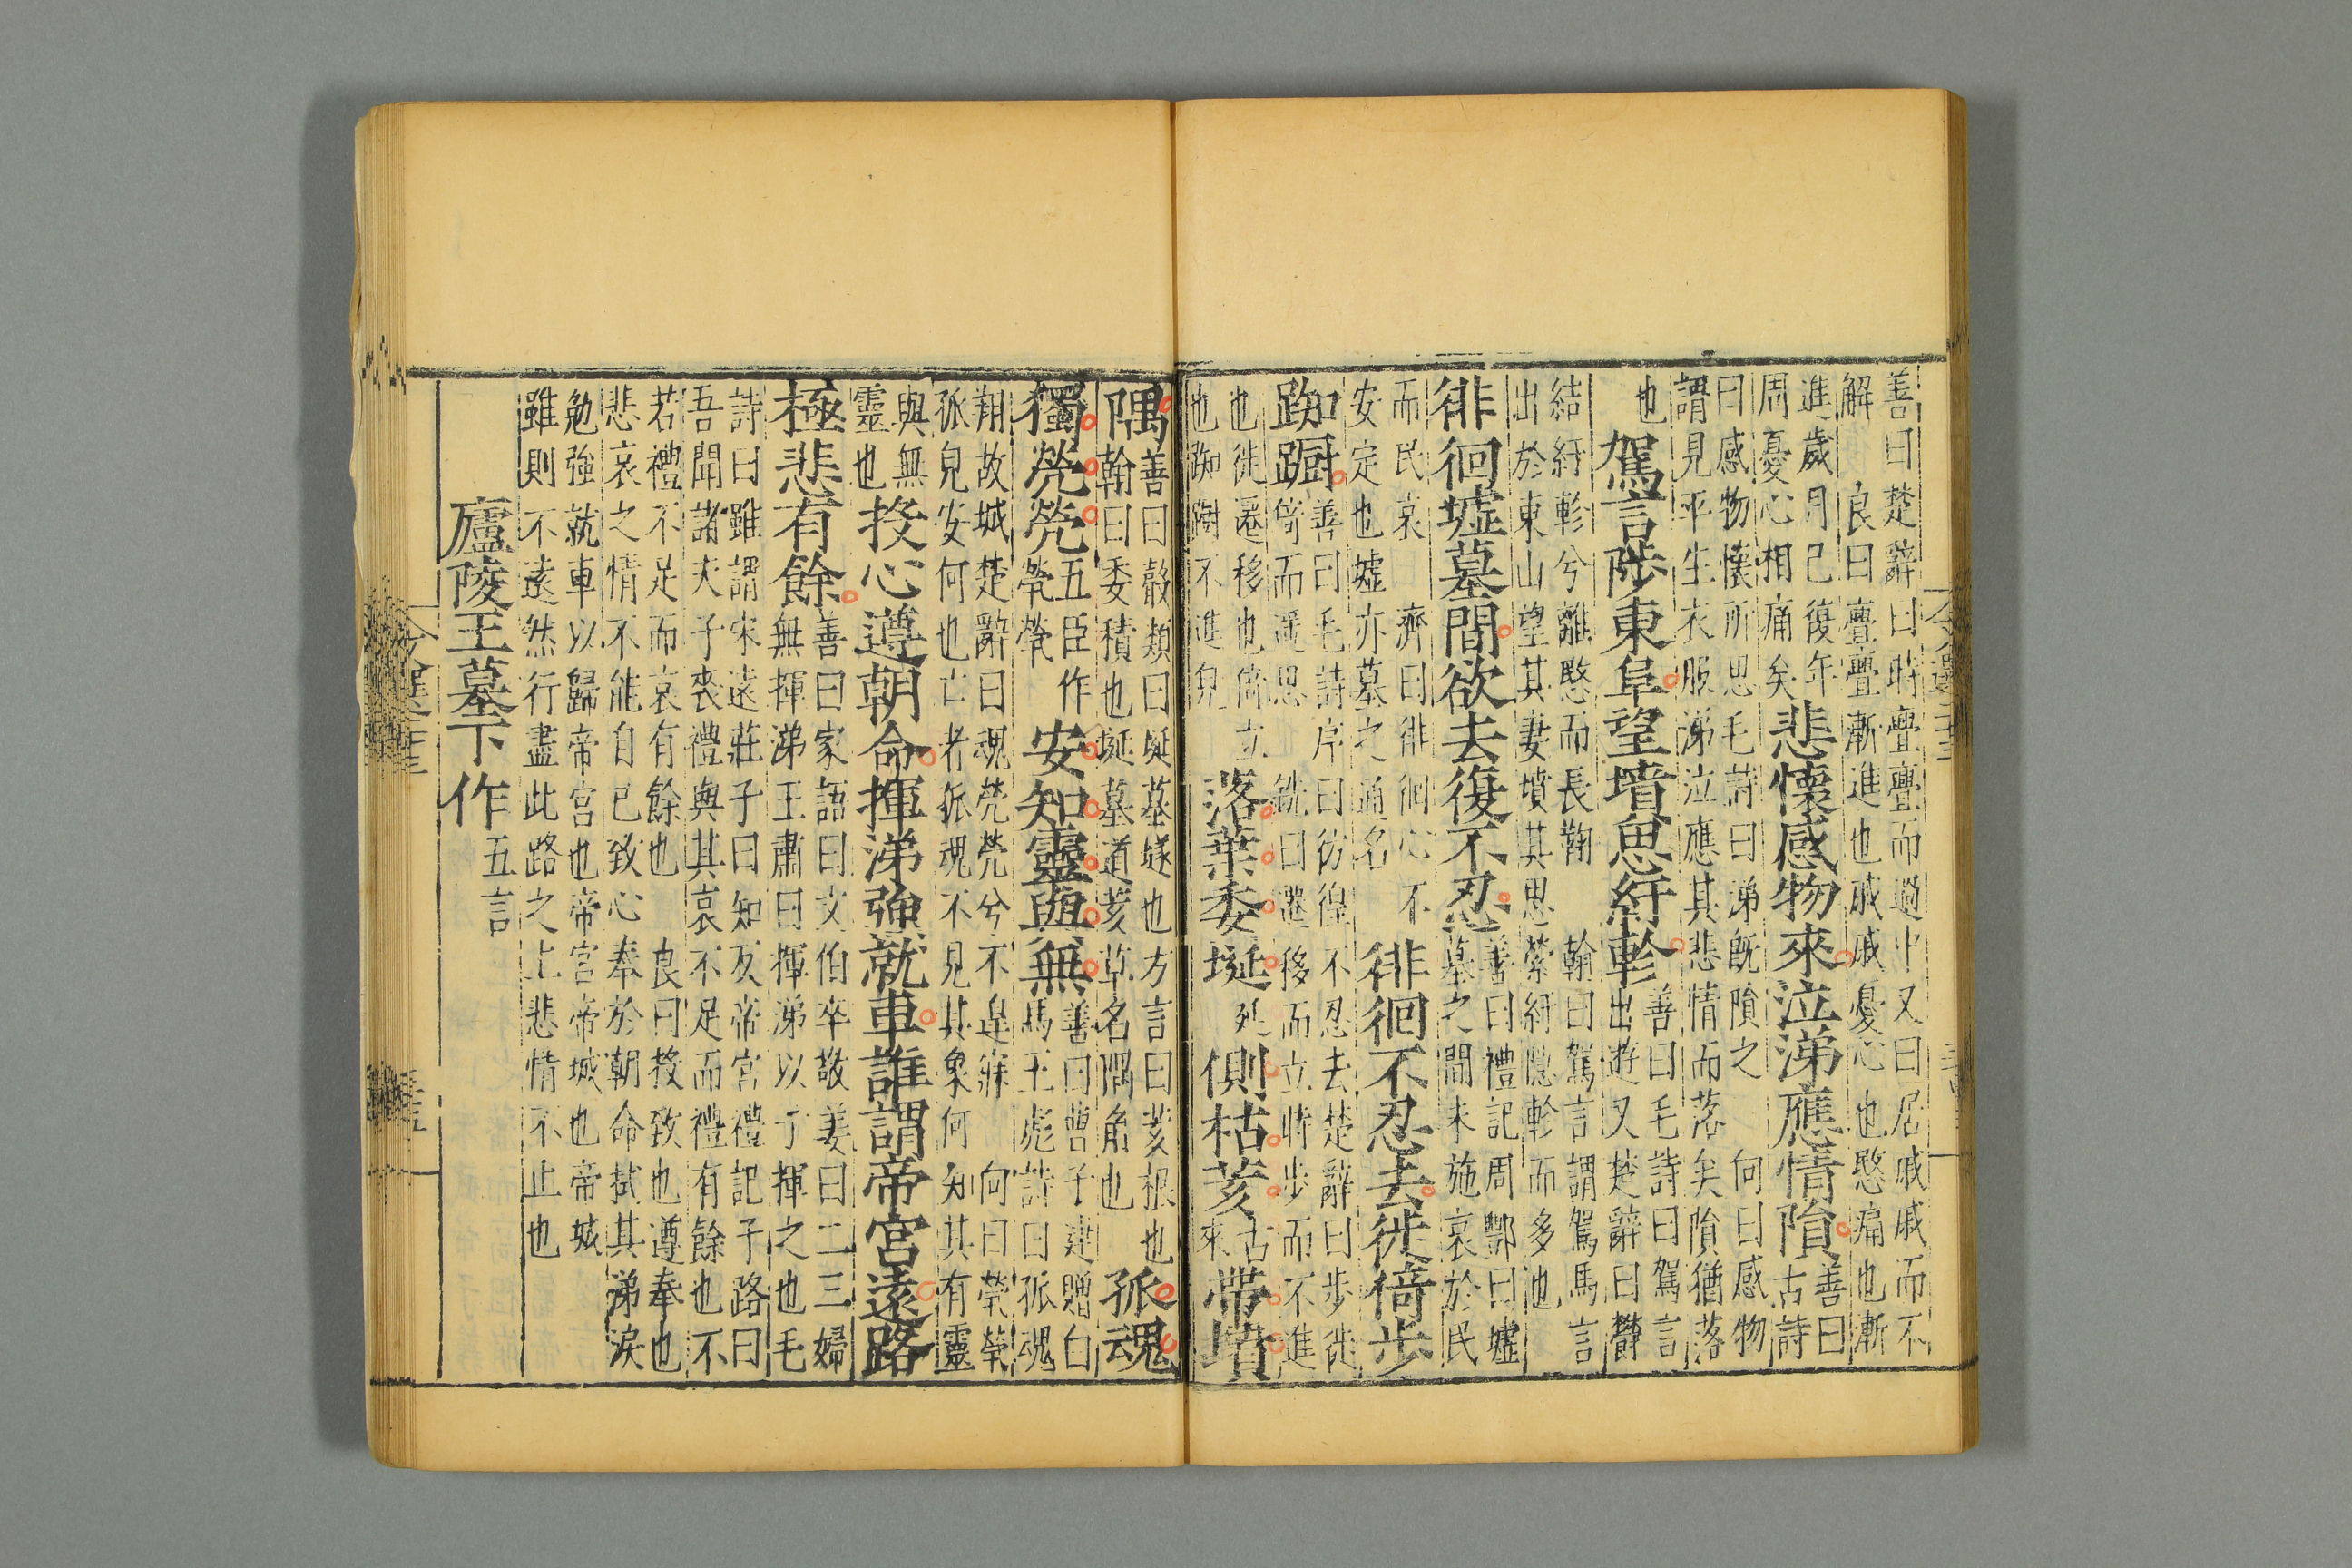 善曰楚辭曰時亹亹而過中又曰居戚戚而不
解　良曰亹亹漸進也戚戚憂心也愍痛也漸
進歲月已復年
周憂心相痛矣
悲懷感物來泣涕應情隕
善曰
古詩
曰感物懷所思毛詩曰涕既隕之　向曰感物
謂見平生衣服涕泣應其悲情而落矣隕猶落
也
駕言陟東阜望墳思紆軫
善曰毛詩曰駕言
出遊又楚辭曰欝
結紆軫兮離愍而長鞠　翰曰駕言謂駕馬言
出於東山望其妻墳其思縈紆隱軫而多也
徘徊墟墓間欲去復不忍
善曰禮記周鄷曰墟
墓之間未施哀於民
而民哀　濟曰徘徊心不
安定也墟亦墓之通名
徘徊不忍去徙倚步
踟蹰
善曰毛詩序曰彷徨不忍去楚辭曰步徙
倚而遥思　銑曰遷移而立時步而不進
也徙遷移也倚立
也踟蹰不進皃
落葉委埏
延
側枯荄
古
來
帶墳
隅
善曰聲類曰埏墓隧也方言曰荄根也
翰曰委積也埏墓道荄草名隅角也
孤魂
獨煢煢
五臣作
煢煢
安知靈與無
善曰曹子建贈白
馬王彪詩曰孤魂
翔故城楚辭曰魂煢煢兮不遑寐　向曰煢煢
孤皃安何也亡者孤魂不見其象何知其有靈
與無
靈也
投心遵朝命揮涕強就車誰謂帝宮遠路
極悲有餘
善曰家語曰文伯卒敬姜曰二三婦
無揮涕王肅曰揮涕以手揮之也毛
詩曰雖謂宋遠莊子曰知反帝宮禮記子路曰
吾聞諸夫子喪禮與其哀不足而禮有餘也不
若禮不足而哀有餘也　良曰投致也遵奉也
悲哀之情不能自已致心奉於朝命拭其涕淚
勉強就車以歸帝宮也帝宮帝城也帝城
雖則不遠然行盡此路之上悲情不止也
廬陵王墓下作
五言